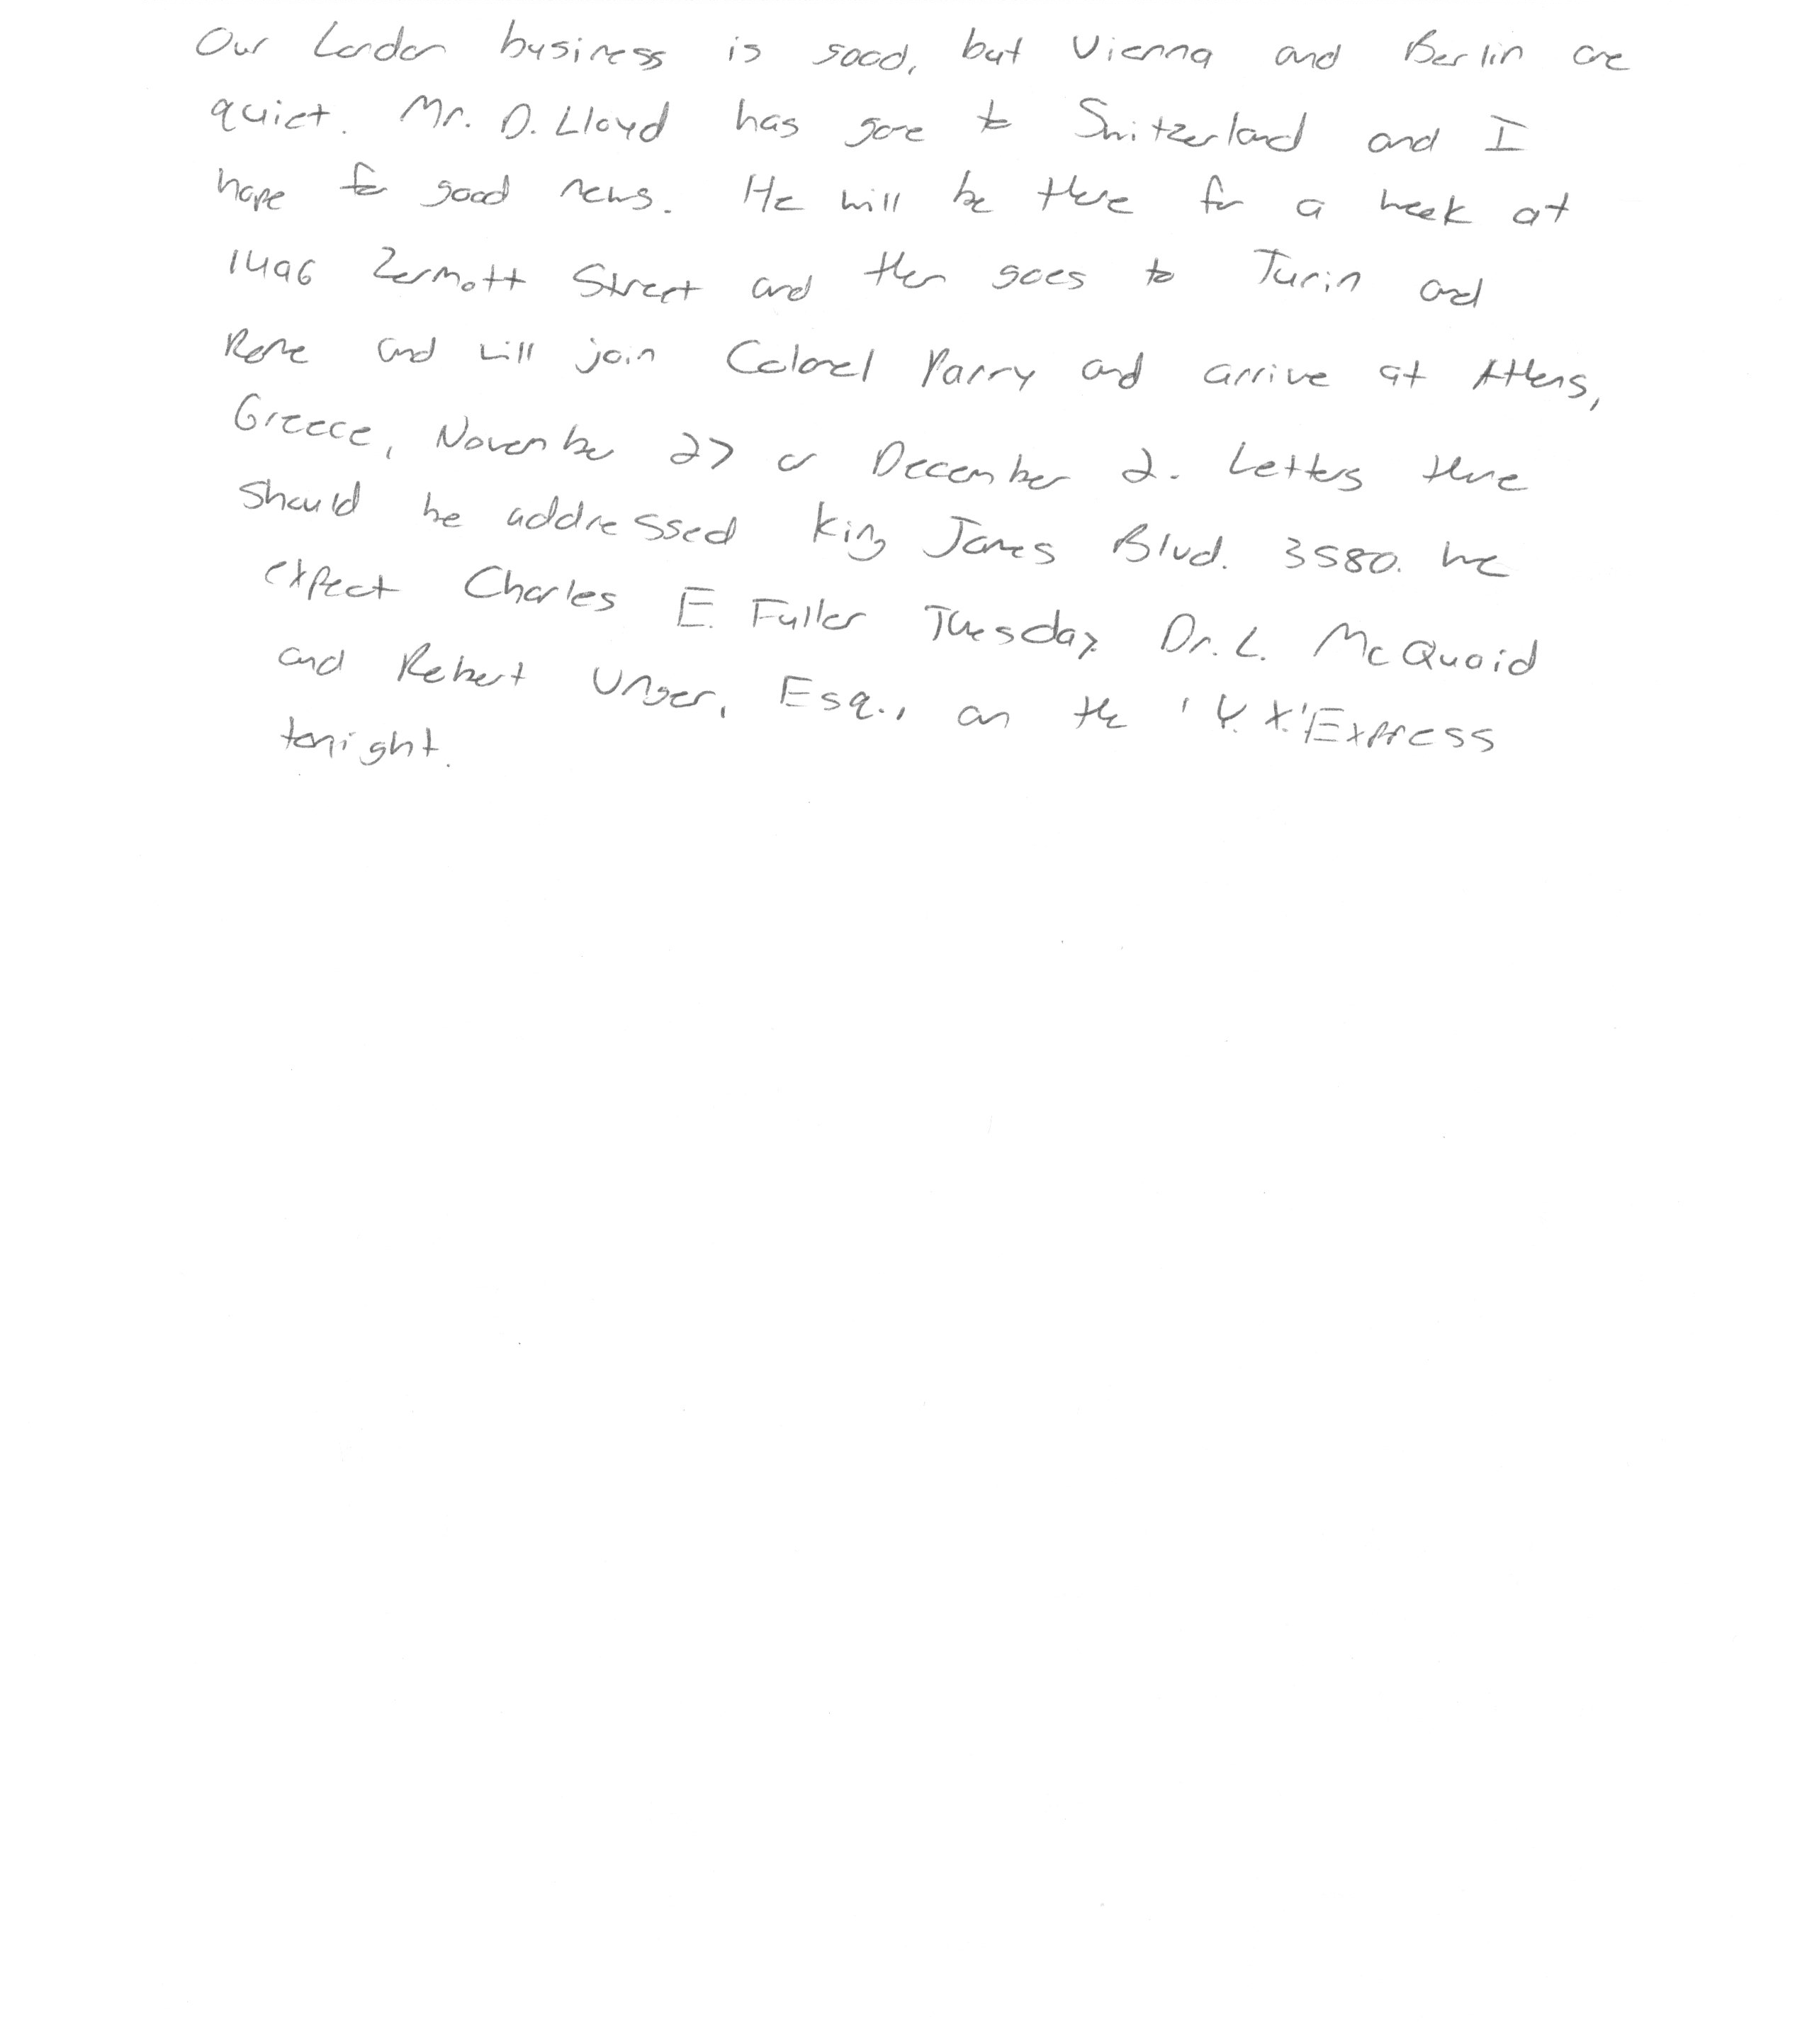 Our London business is good, but Vienna and Berlin are
quiet. Mr. D. Lloyd has gone to Switzerland and I
hope for good news. He will be there for a week at
1496 Zermott Street and then goes to Turin and
Rome and will join Colonel Parry and arrive at Athens,
Greece, November 27 or December 2. Letters there
should be addressed King James Blvd. 3580. We
expect Charles E. Fuller Tuesday. Dr. L. McQuaid
and Robert Unger, Esq., on the 'Y.X.' Express
tonight.